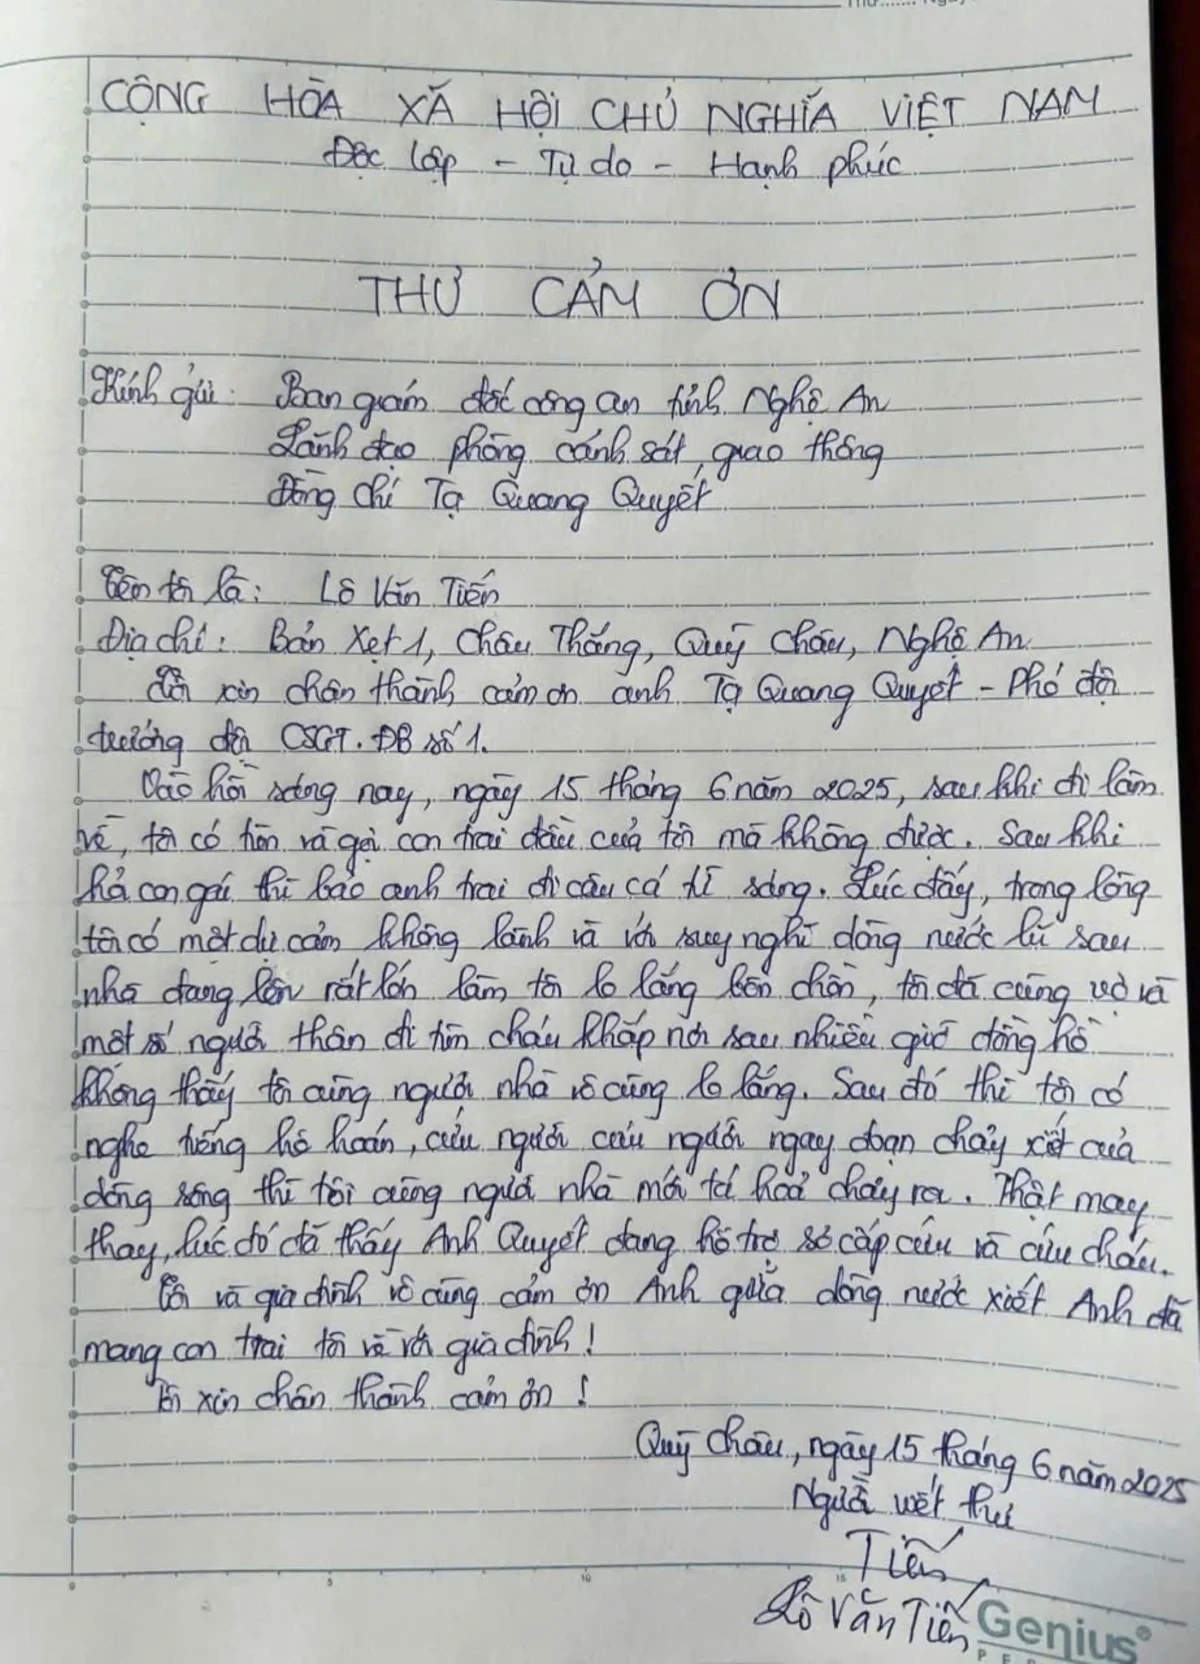 Thứ....... Ngày
CỘNG HÒA XÃ HỘI CHỦ NGHĨA VIỆT NAM
Độc lập - Tự do - Hạnh phúc
THƯ CẢM ƠN
Kính gửi: Ban giám đốc công an tỉnh Nghệ An
Lãnh đạo phòng cảnh sát, giao thông
Đồng chí Tạ Quang Quyết
Tên tôi là: Lô Văn Tiến
Địa chỉ: Bản Xẹt 1, Châu Thắng, Quỳ Châu, Nghệ An
Tôi xin chân thành cảm ơn anh Tạ Quang Quyết - Phó đội
trưởng đội CSGT.ĐB số 1.
Vào hồi sáng nay, ngày 15 tháng 6 năm 2025, sau khi đi làm
về, tôi có tìm và gọi con trai đầu của tôi mà không được. Sau khi
hỏi con gái thì bảo anh trai đi câu cá từ sáng. Lúc đấy, trong lòng
tôi có một dự cảm không lành và với suy nghĩ dòng nước lũ sau
nhà đang lên rất lớn làm tôi lo lắng bồn chồn, tôi đã cùng vợ và
một số người thân đi tìm cháu khắp nơi sau nhiều giờ đồng hồ
không thấy tôi cùng người nhà vô cùng lo lắng. Sau đó thì tôi có
nghe tiếng hô hoán, cứu người cứu người ngay đoạn chảy xiết của
dòng sông thì tôi cùng người nhà mới tá hoả chạy ra. Thật may
thay, lúc đó đã thấy Anh Quyết đang hỗ trợ sơ cấp cứu và cứu cháu.
Tôi và gia đình vô cùng cảm ơn Anh giữa dòng nước xiết Anh đã
mang con trai tôi về với gia đình!
Tôi xin chân thành cảm ơn!
Quỳ Châu, ngày 15 tháng 6 năm 2025
Người viết thư
Tiến
Lô Văn Tiến
0 5 10 15
Genius®